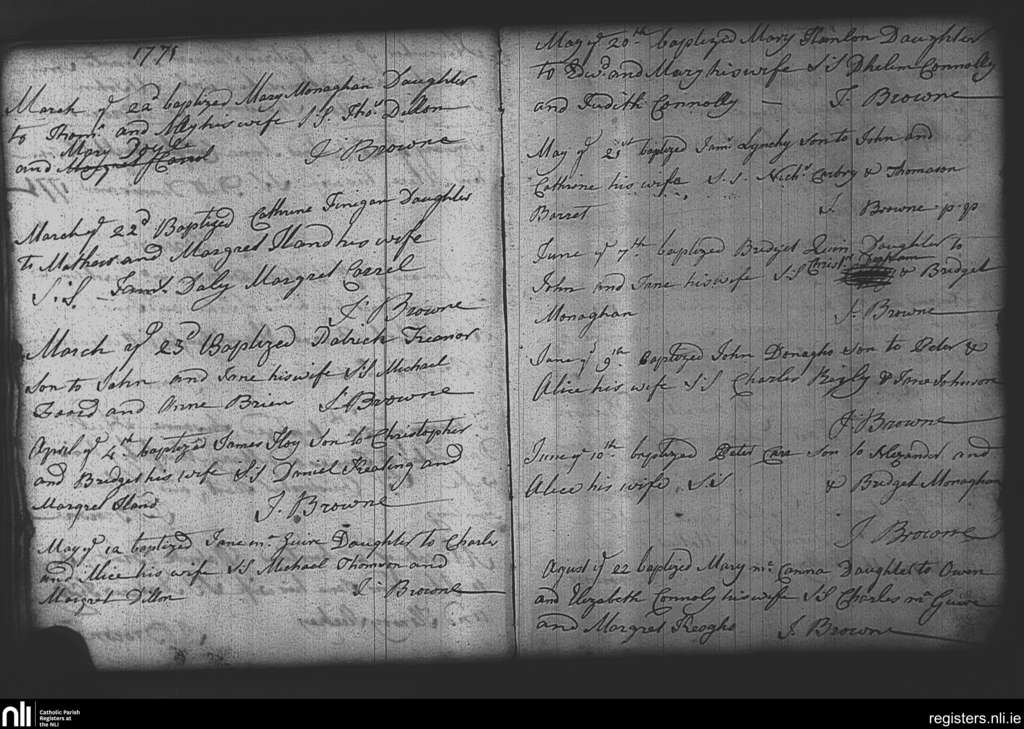 1775
March ye 22d baptized Mary Monaghan Daughter
to Thoms and his wife S.S. Thos Dillon
Mary Doyle
and Margret Carrol J Browne
March ye 22d Baptized Cathrine Finegan Daughter
to Mathew and Margret Hand his wife
S.S. Jams Daly Margret Carrel
J. Browne
March ye 23d Baptized Patrick Treanor
Son to John and Jane his wife S.S Michael
and Anne Brien J. Browne
April ye 4th baptized James Hoy Son to Christopher
and Bridget his wife S.S Daniel Keating and
Margret Hand J. Browne
May ye 12 baptized Jane mc Guire Daughter to Charles
and Alice his wife S.S Michael Thomson and
Margret Dillon J. Browne
May ye 20th baptized Mary Hanlon Daughter
to Edwd and Mary his wife S.S Phelem Connolly
and Judith Connolly — J. Browne
May ye 21st baptized Jams Lynchy son to John and
Cathrine his wife S.S. Nichs Corbry & Thomason
Barret J. Browne p.p
June ye 7th baptized Bridget Quin Daughter to
John and Jane his wife S.S Christr & Bridget
Monaghan J. Browne
June ye 9th baptized John Donagho son to Peter &
Alice his wife S.S Charles Rigly & Jane Johnson
J. Browne
June ye 10th baptized Peter Carr Son to Alexander and
Alice his wife S.S & Bridget Monaghan
J. Browne
Agust ye 22 baptized Mary mc Canna Daughter to Owen
and Elizabeth Connoly his wife S.S Charles mc Guire
and Margret Keogho J. Browne
nli
Catholic Parish
Registers at
the NLI
registers.nli.ie